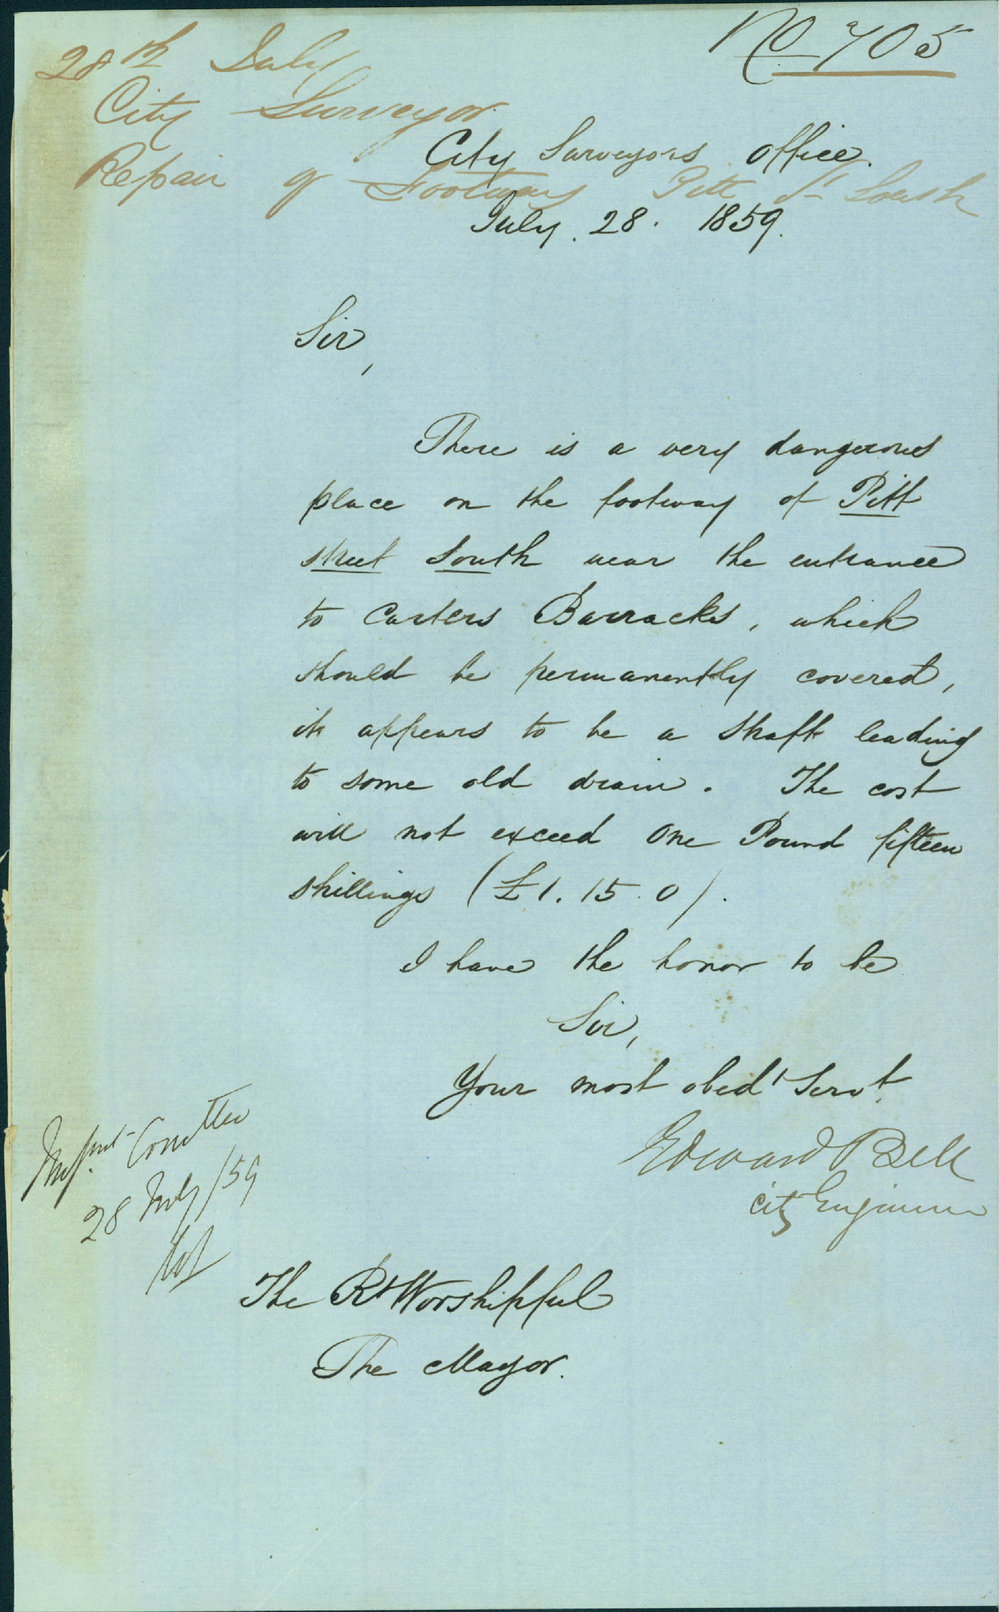 No 705
28th July
City Surveyor
Repair of Footway Pitt St South
City Surveyors Office.
July. 28. 1859.
Sir,
There is a very dangerous
place on the footway of Pitt
street South near the entrance
to Carters Barracks, which
should be permanently covered,
it appears to be a shaft leading
to some old drain. The cost
will not exceed One Pound fifteen
shillings (£1. 15. 0).
I have the honor to be
Sir,
Your most obedt Servt.
Edward Bell
City Engineer
Impt. Comttee
28 July /59
The Rt Worshipful
The Mayor.